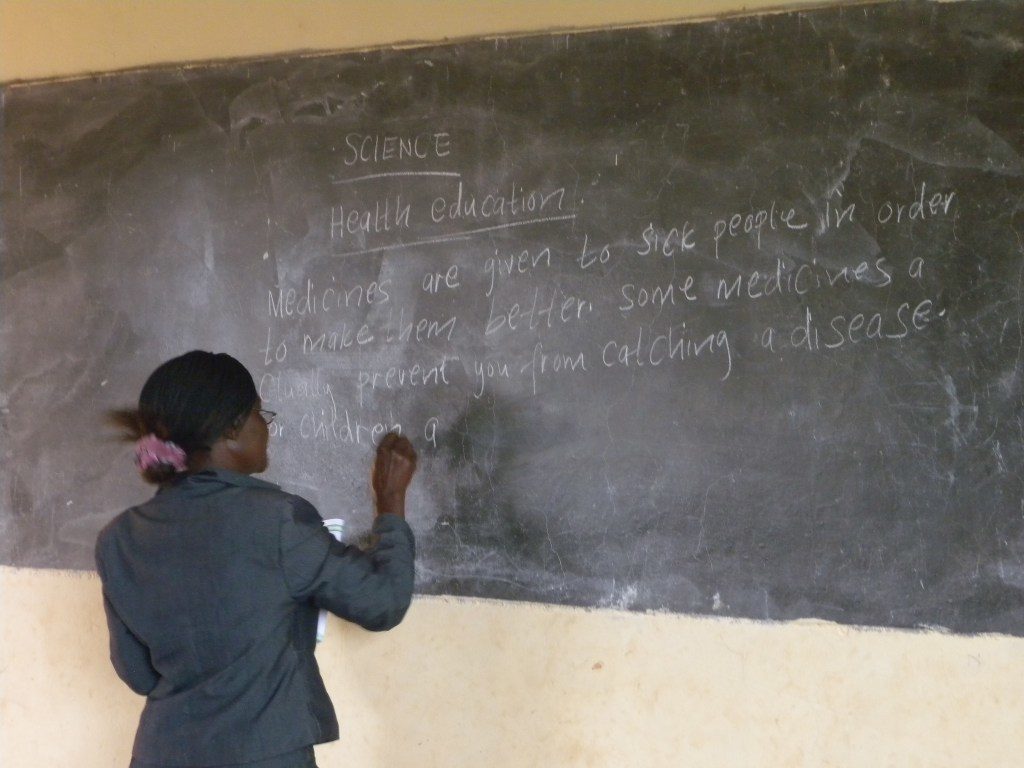 SCIENCE
Health education.
Medicines are given to sick people in order
to make them better. Some medicines a
ctually prevent you from catching a disease.
or children a